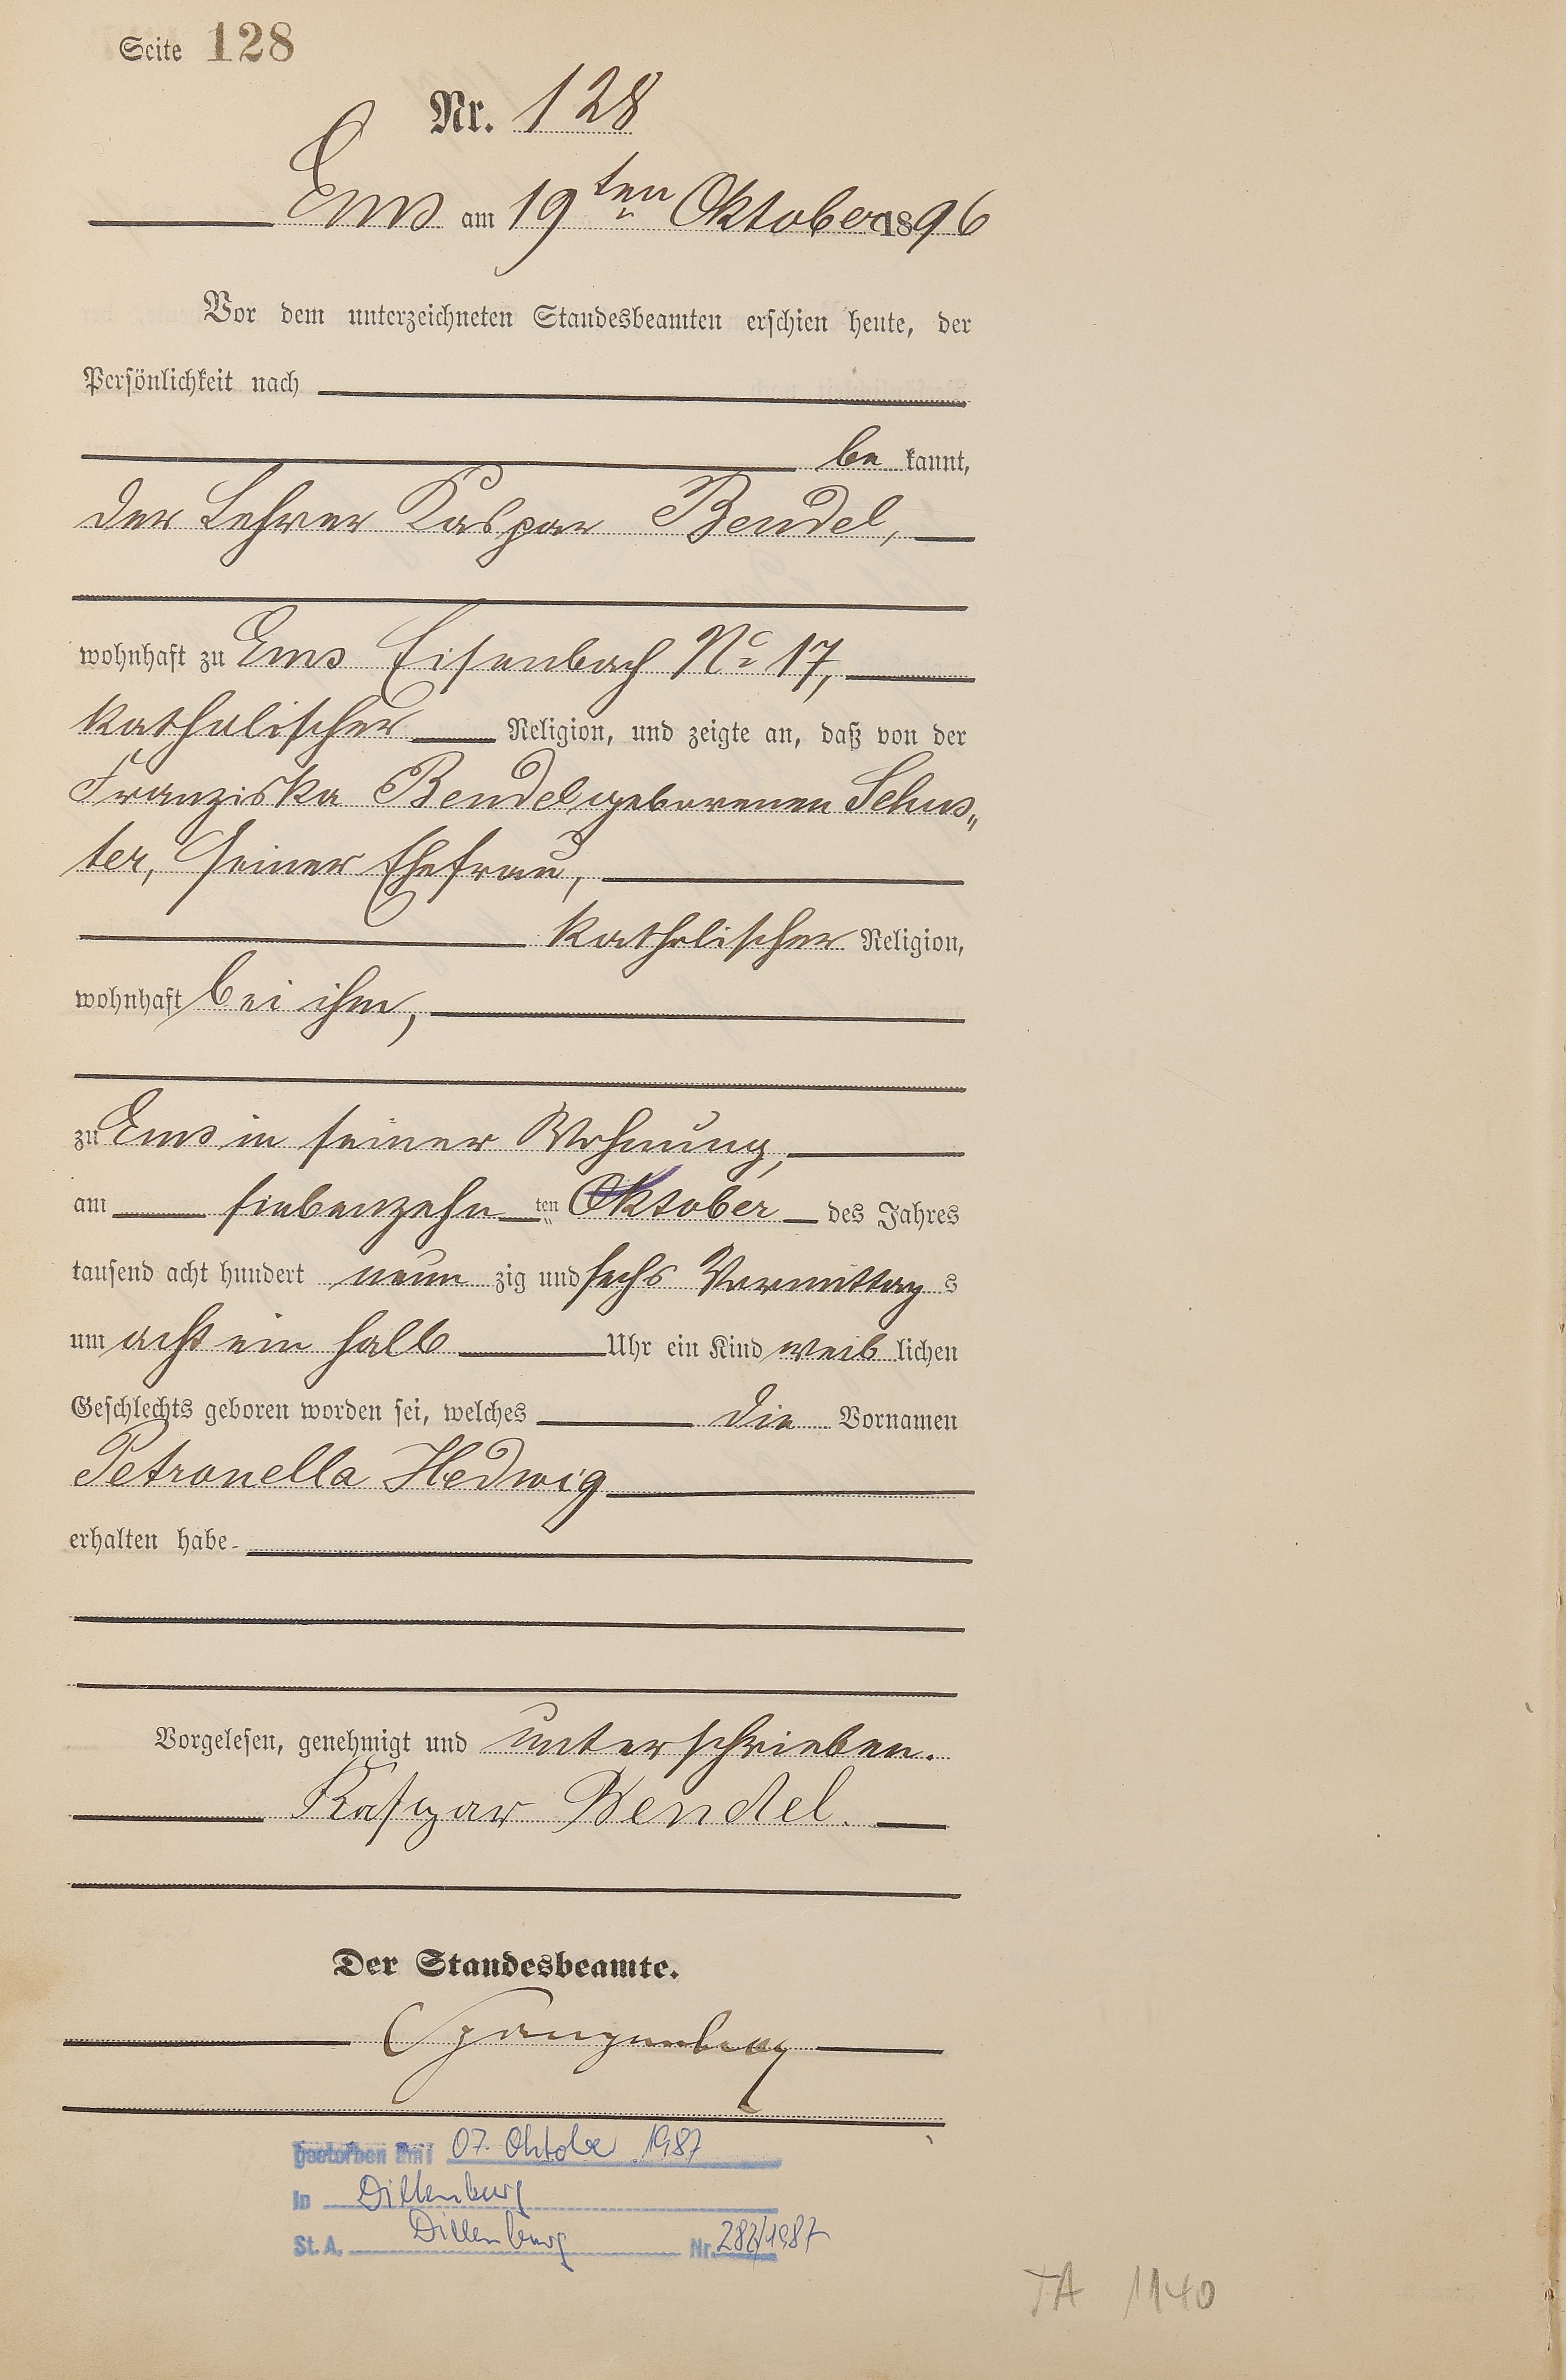 Seite 128
Nr. 128
Ems am 19ten Oktober 1896
Vor dem unterzeichneten Standesbeamten erschien heute, der
Persönlichkeit nach
be kannt,
der Lehrer Kaspar Bendel,
wohnhaft zu Ems Eisenbach No 17,
katholischer Religion, und zeigte an, daß von der
Franziska Bendel geborenen Schus„
ter, seiner Ehefrau,
katholischer Religion,
wohnhaft bei ihm,
zu Ems in seiner Wohnung,
am siebenzehn ten Oktober des Jahres
tausend acht hundert neun zig und sechs Vormittag s
um acht ein halb Uhr ein Kind weib lichen
Geschlechts geboren worden sei, welches die Vornamen
Petronella Hedwig
erhalten habe
Vorgelesen, genehmigt und unterschrieben.
Kaspar Bendel.
Der Standesbeamte.
Spangenberg
Gestorben am: 07. Oktober 1987
In Dillenburg
St. A. Dillenburg Nr. 282/1987
TA 1140